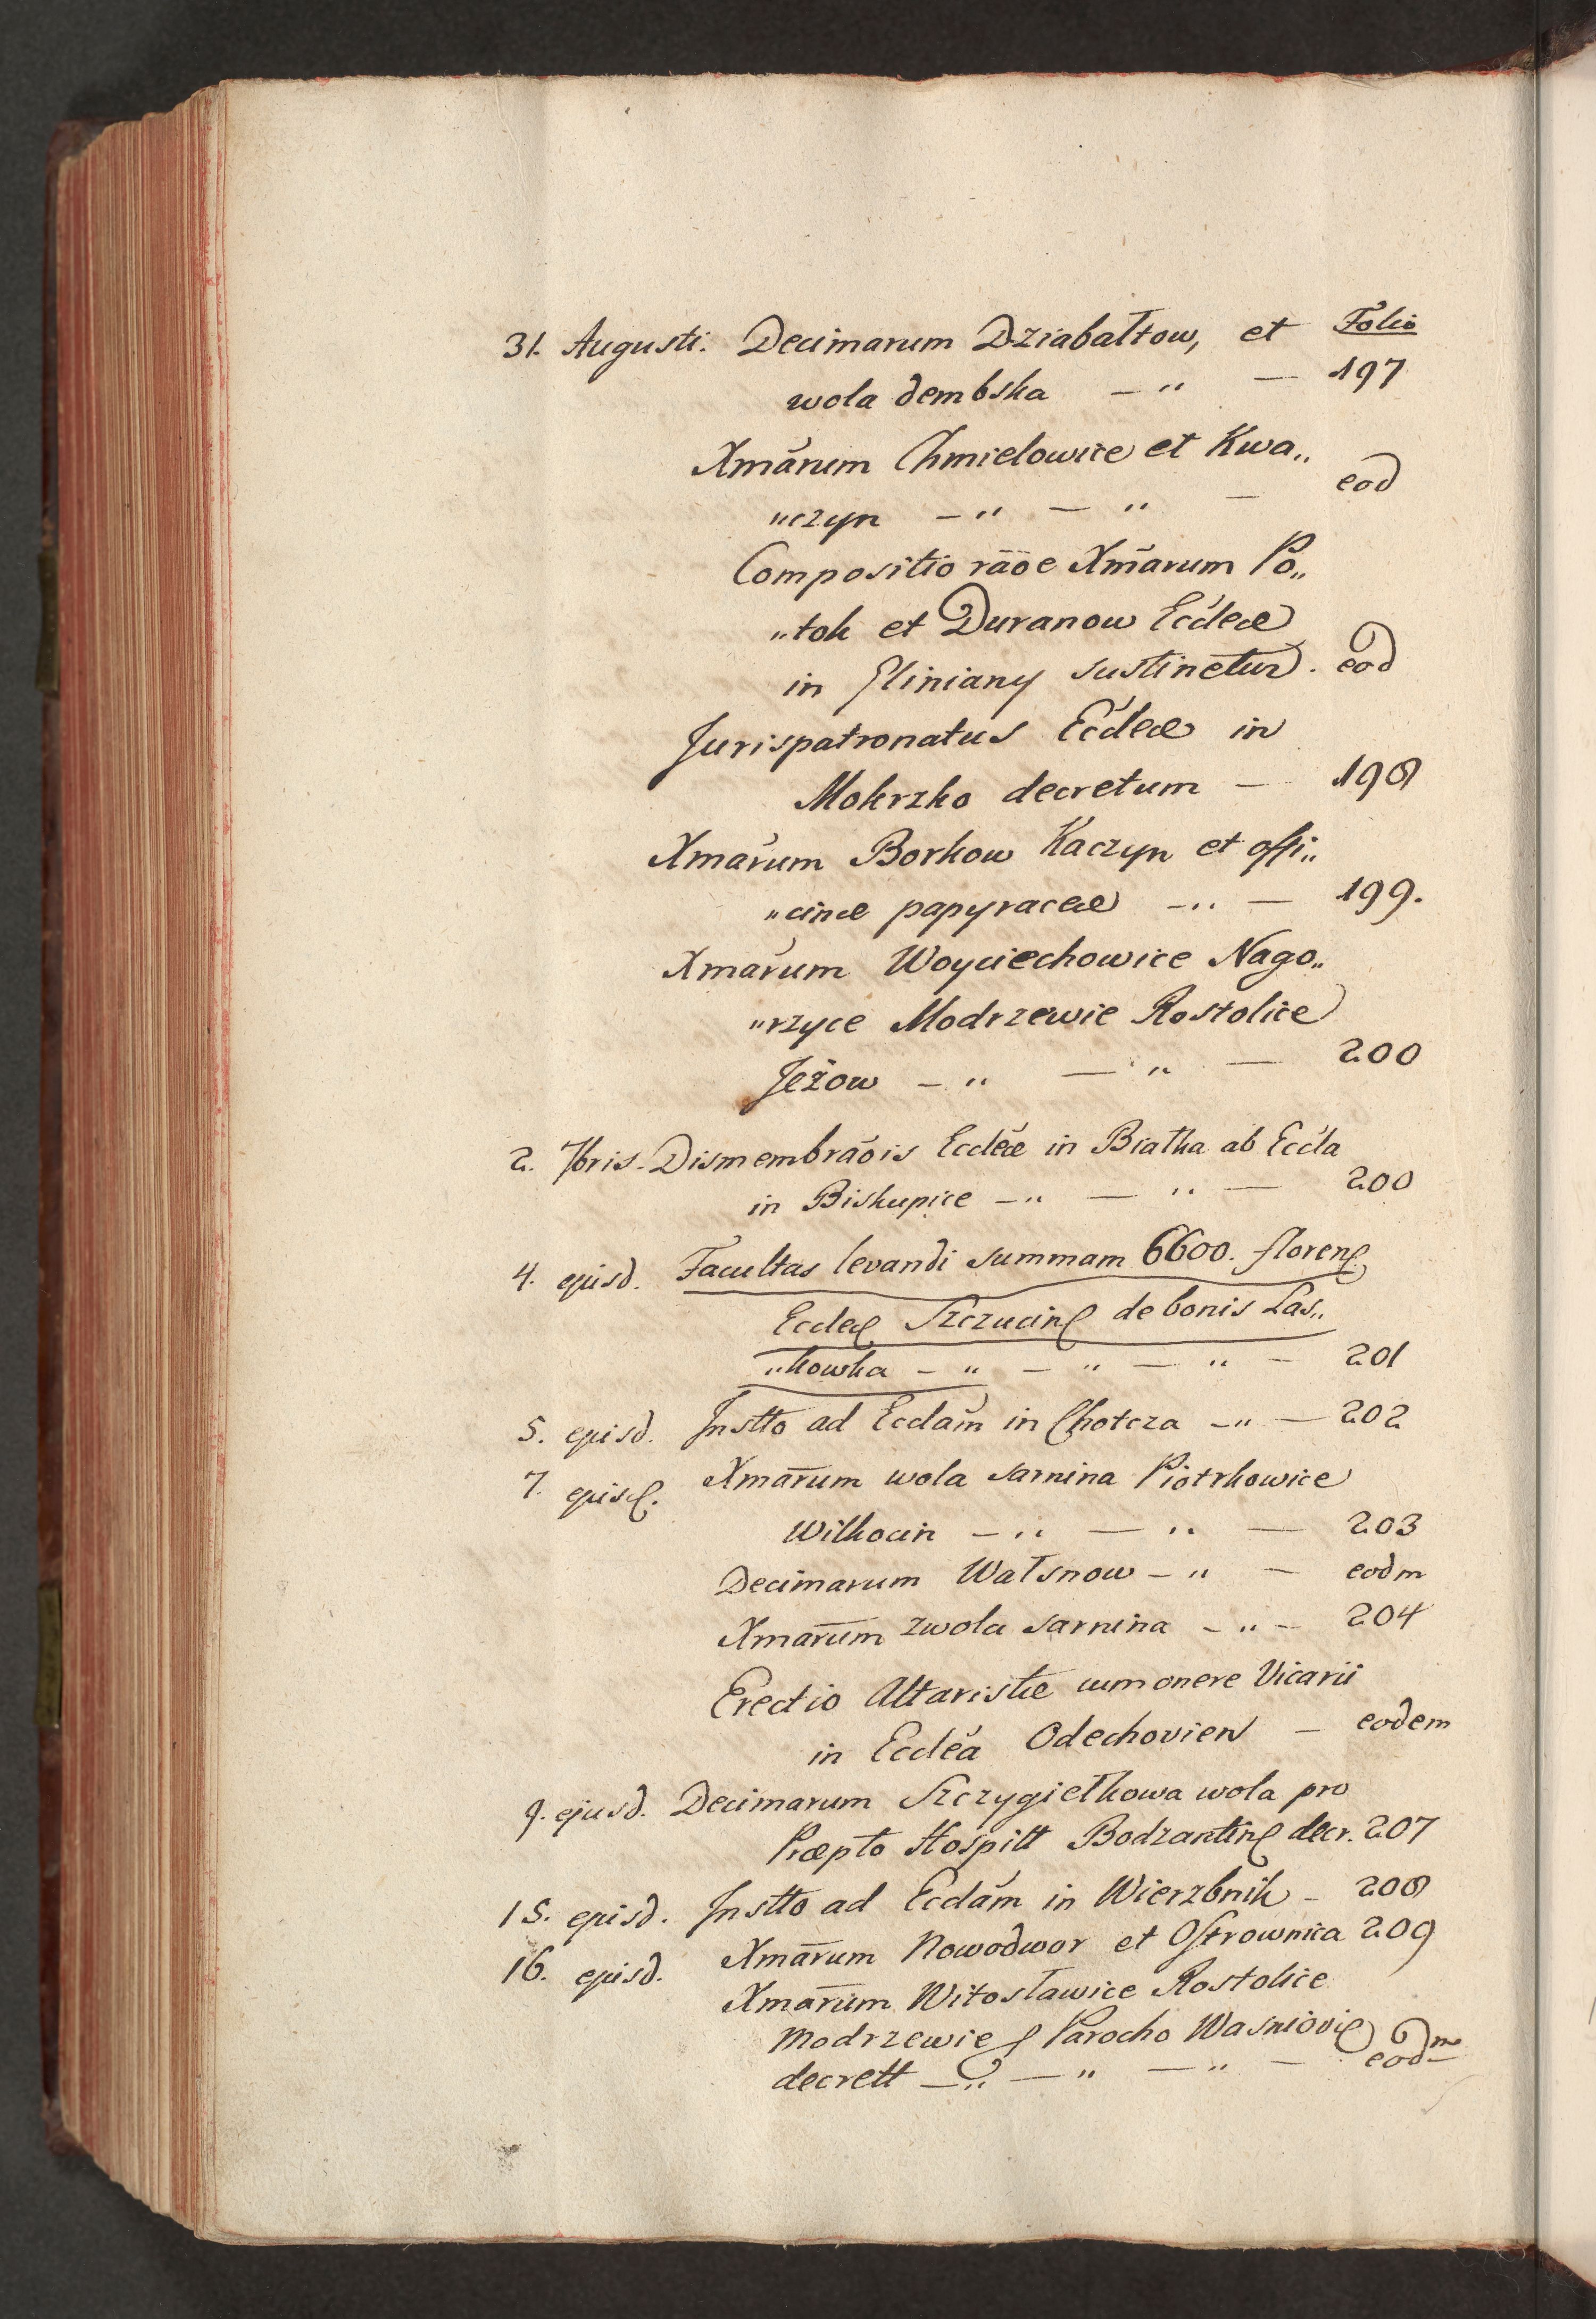 Folio
31. Augusti. Decimarum Dziabałtow, et
wola dembska —„ — 197
Xmarum Chmielowice et Kwa„
„czyn —„ — „ — eod
Compositio rãoe Xmarum Po„
„tok et Duranow Ecclæ
in Gliniany sustinetur. eod
Jurispatronatus Ecclæ in
Mokrzko decretum — 198
Xmarum Borkow Kaczyn et offi„
„cinæ papyraceæ —„ — 199.
Xmarum Woyciechowice Nago„
„rzyce Modrzewie Rostolice
Jeżow —„ — „ — 200
2. 7bris. Dismembraõis Eccleæ in Białka ab Eccla
in Biskupice —„ — „ — 200
4. ejusd. Facultas levandi summam 6600. floren
Eccleæ Szczucin de bonis Las„
„kowka —„ — „ — „ — 201
5. ejusd. Instto ad Ecclãm in Chotcza —„ — 202
7. ejusd. Xmarum wola sarnina Piotrkowice
Wilkocin —„ — „ — 203
Decimarum Wałsnow —„ — eodm
Xmarum zwola sarnina —„— 204
Erectio Altaristæ cum onere Vicarii
in Ecclea Odechovien — eodem
9. ejusd. Decimarum Szczygiełkowa wola pro
Præpto Hospitt Bodzantin decr. 207
15. ejusd. Instto ad Ecclãm in Wierzbnik — 208
16. ejusd. Xmarum Nowodwor et Ostrownica 209
Xmarum Witosławice Rostolice
Modrzewie Parocho Wasniovie
decrett —„ — „ — „ — eodm